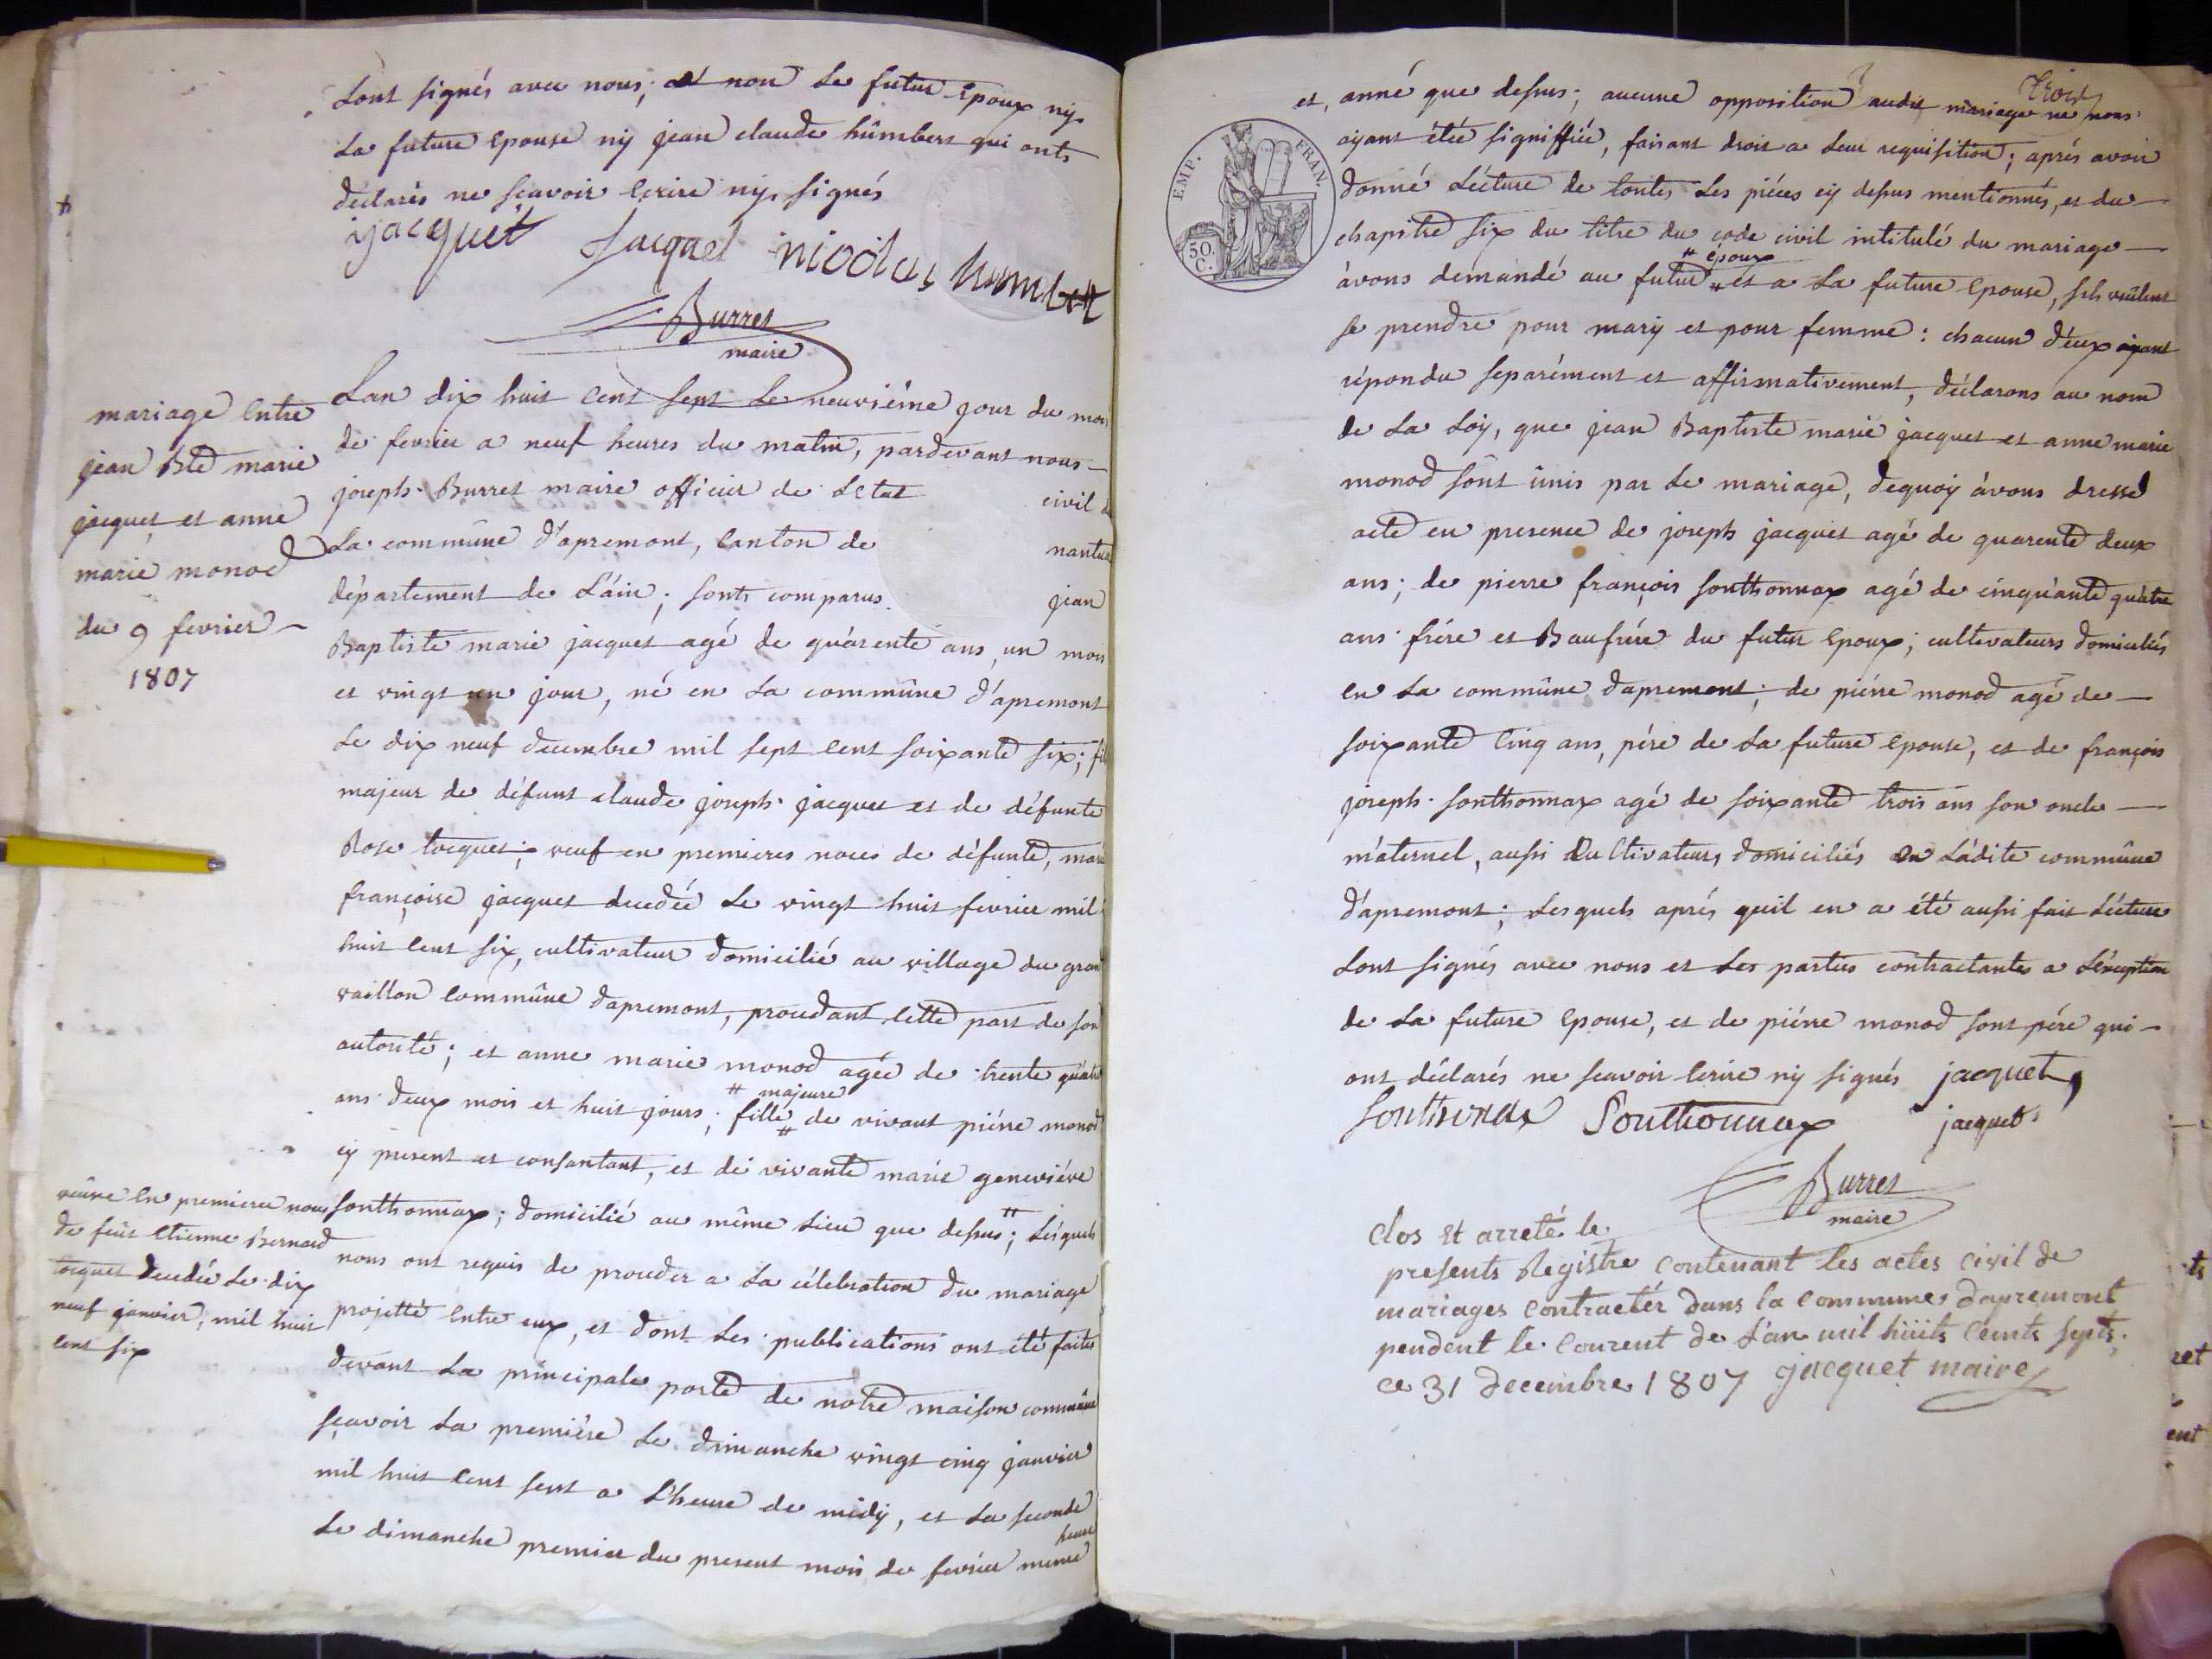 sont signés avec nous; et non le futur epoux ny
la future epouse ny jean claude hûmbert qui onts
déclarés ne sçavoir ecrire ny signés
jacquet jacquet nicolas humbert
Burret
maire
mariage entre
jean Bte marie
jacquet et anne
marie monod
du 9 fevrier
1807
Lan dix huit cent sept le neuvième jour du mois
de fevrier a neuf heures du matin, pardevant nous
joseph Burret maire officier de Letat civil de
La commûne d'apremont, canton de nantua
département de L'ain; sonts comparus jean
Baptiste marie jacquet agé de quàrente ans, un mois
et vingt un jour, né en La commûne d'apremont
Le dix neuf decembre mil sept cent soixante six; fils
majeur de défunt claude joseph jacquet et de défunte
Rose tocquet; veuf en premieres noces de défunte, marie
françoise jacquet decedéé Le vingt huit fevrier mil
huit cent six, cultivateur domicilié au village du grand
vaillon commûne dapremont, procedant cette part de son
autorité; et anne marie monod agée de trente quàtre
# majeure
ans deux mois et huit jours; fille # de vivant piérre monod
cy present et consantant, et de vivante marie geneviéve
sonthonnax; domicilié au même Lieu que dessus #; Lesquels
veuve en premiere noces
de feût etienne Bernard
tocquet decedée Le dix
neuf janvier, mil huit
cent six
nous ont requis de proceder a La célebration du mariage
projetté entre eux, et dont Les publications ont été faites
devant La principale porte de notre maison commûne
sçavoir La première Le dimanche vingt cinq janvier
mil huit cent sept a L'heure de midy, et La seconde
Le dimanche premier du present mois de fevrier meme
heure
trois
et, anné que dessus; aucune opposition audit mariage ne nous
ayant étéé signiffiéé, faisant droit a Leur requisition; aprés avoir
donné Lécture de toutes Les piéces cy dessus mentionnés, et du
chapitre six du titre du code civil intitulé du mariage
# époux
àvons démandé au futur # et a La future epouse, sils veûlent
se prendre pour mary et pour femme: chacun d'éux ayant
répondu separément et affirmativement, déclarons au nom
de La Loy, que jean Baptiste marie jacquet et anne marie
monod sônt ûnis par Le mariage, dequoy àvons dressé
acte en presence de joseph jacquet agé de quarente deux
ans; de pierre françois sonthonnax agé de cinquànte quàtre
ans frére et Baufrére du futur epoux; cultivateurs domiciliés
en La commûne dapremont; de piérre monod agé de
soixante cinq ans, pére de La future epouse, et de françois
joseph sonthonnax agé de soixante trois ans son oncle
màternel, aussi cultivateurs domiciliés en Làdite commûne
d'apremont; Lesquels aprés quil en a été aussi fait Lécture
sont signés avec nous et Les parties contractantes a L'éxception
de La future epouse, et de piérre monod sont pére qui
ont déclarés ne scavoir ecrire ny signés jacquet
Sonthonax Sonthonnax jacquet
Burret
maire
EMP. FRAN.
50.
C.
Clos et arreté le
presents Registre contenant les actes civil de
mariages contractér dans la commune dapremont
pendent le courent de L'an mil huits cents septs,
ce 31 decembre 1807 jacquet maire